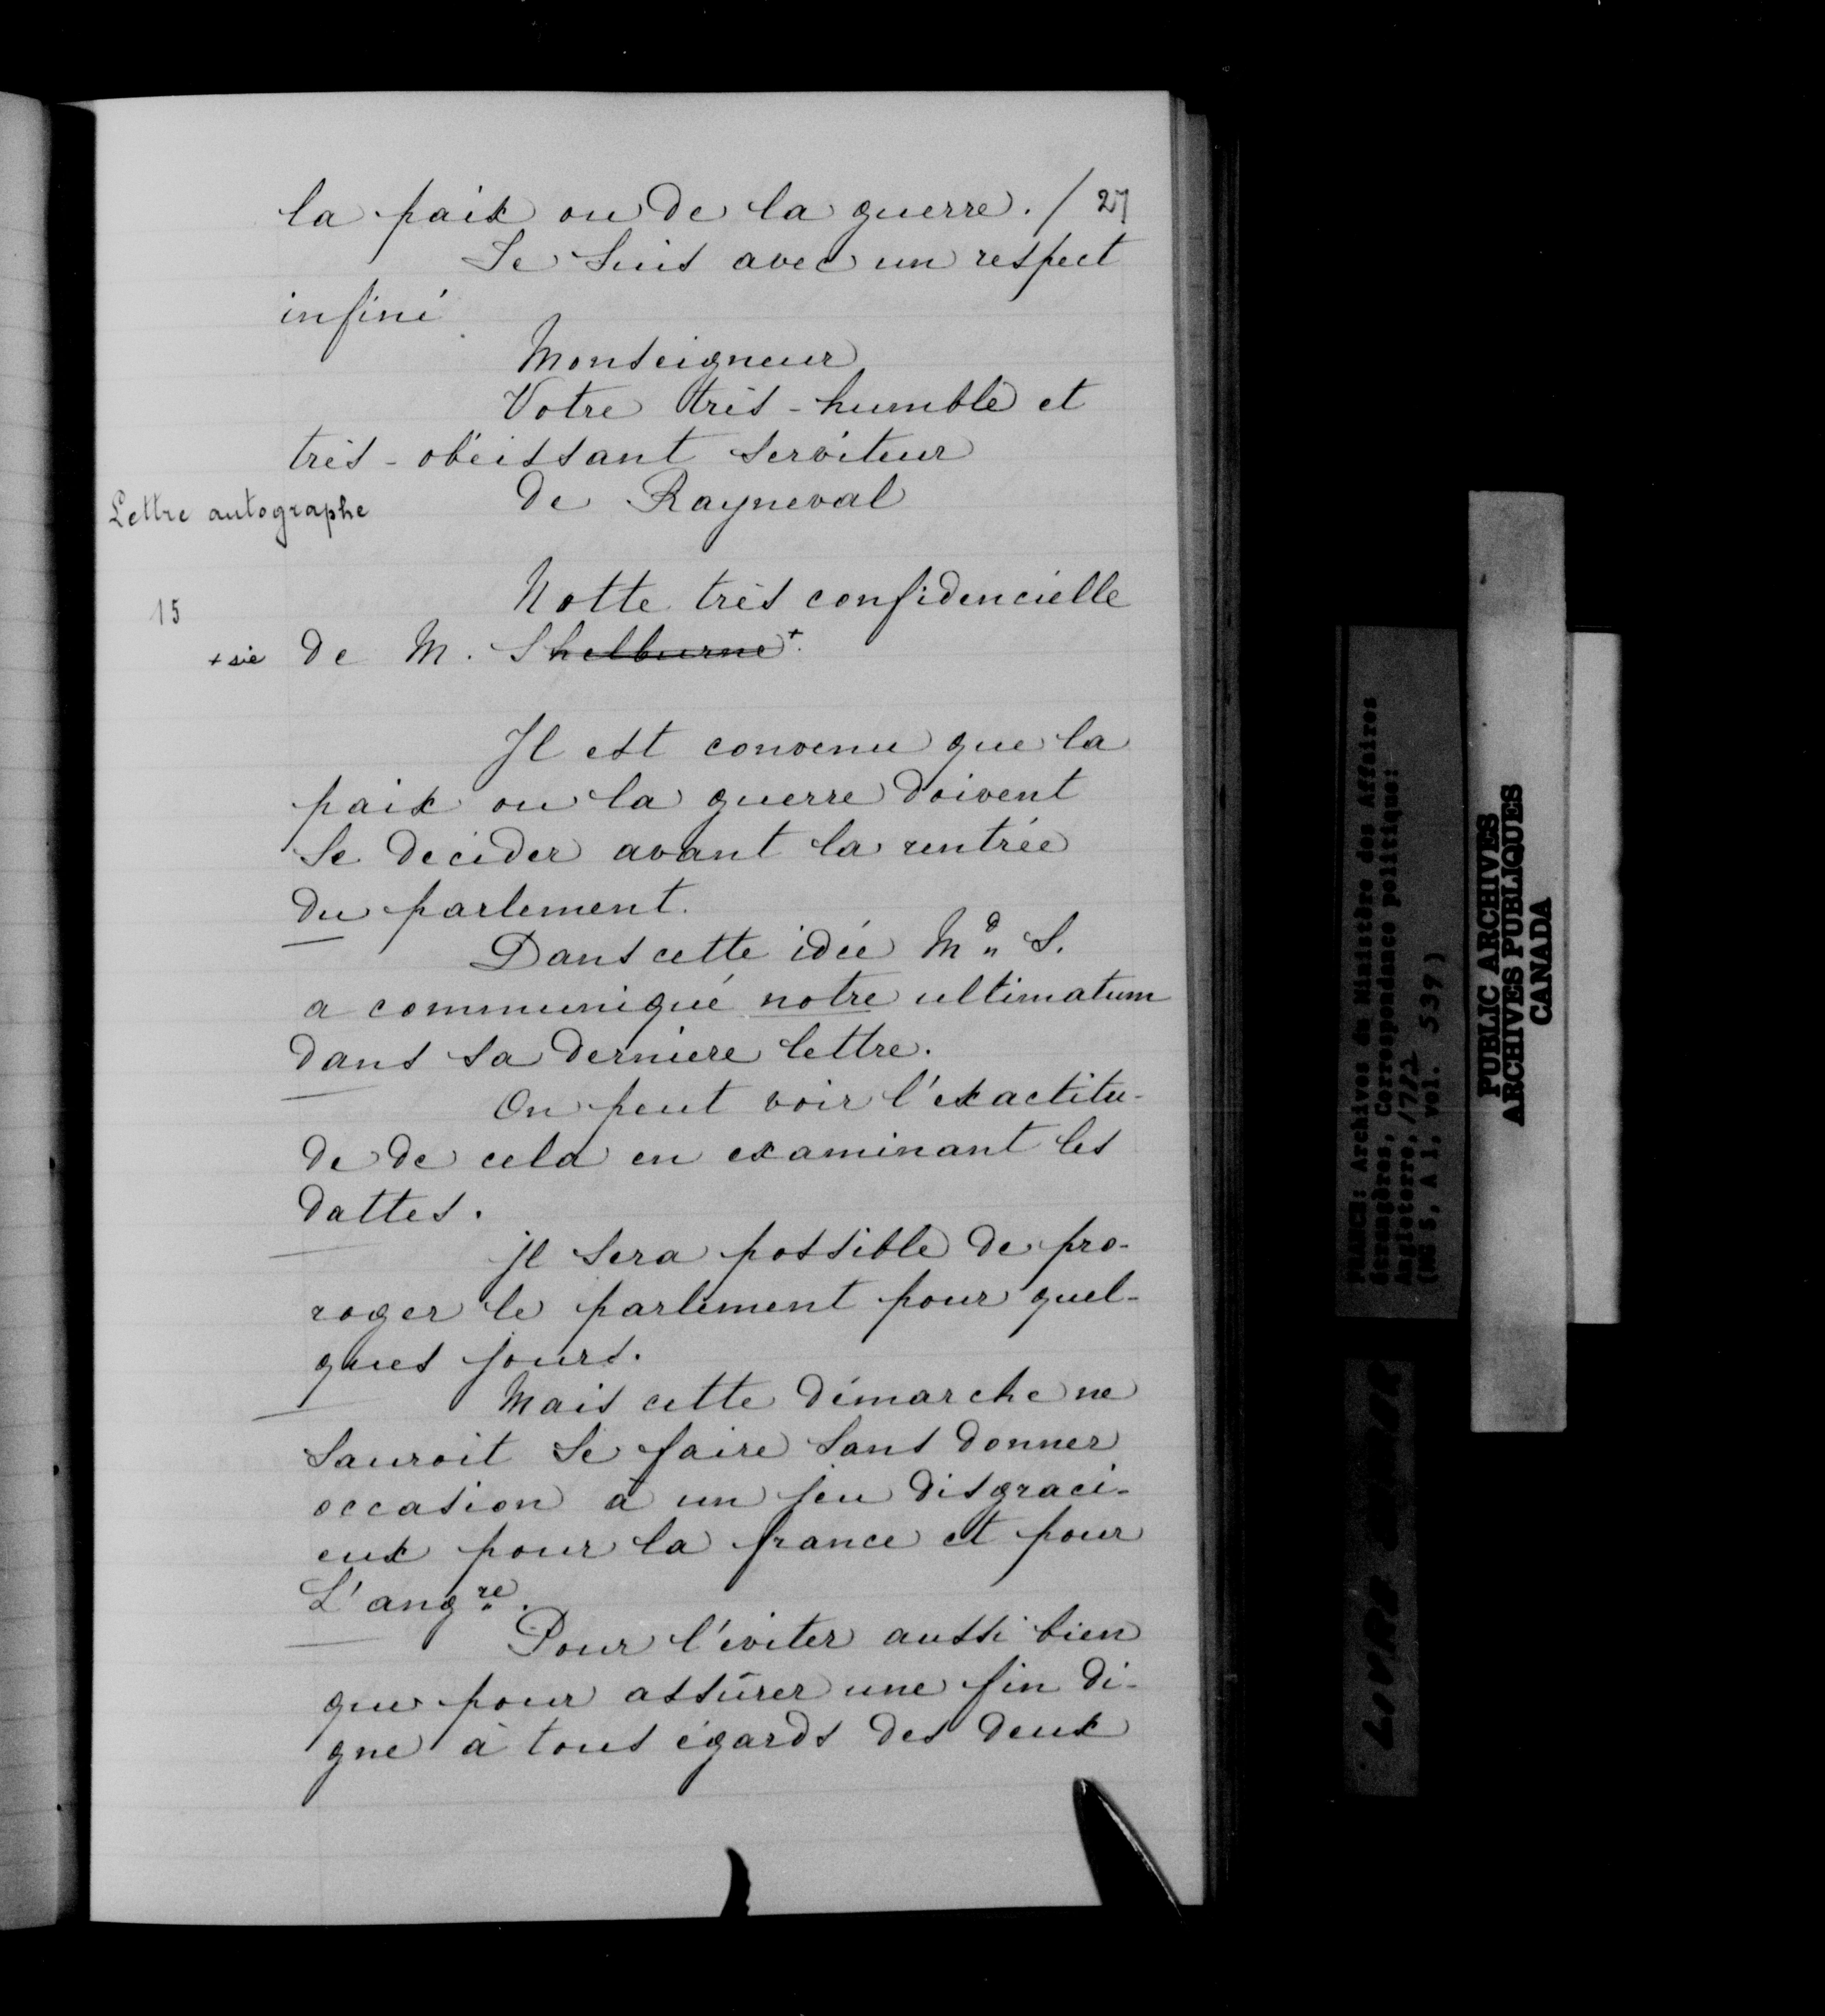 la paix ou de la guerre. / 27
Je suis avec un respect
infini
Monseigneur
Votre très-humble et
très-obéissant serviteur
Lettre autographe
de Rayneval
Notte très confidencielle
15
+ sic de M. Shelburne +.
Il est convenu que la
paix ou la guerre doivent
se décider avant la rentrée
du parlement.
Dans cette idée Md S.
a communiqué notre ultimatum
dans sa derniere lettre.
On peut voir l'exactitu-
de de cela en examinant les
dattes.
il sera possible de pro-
roger le parlement pour quel-
ques jours.
Mais cette démarche ne
sauroit se faire sans donner
occasion à un jeu disgraci-
eux pour la france et pour
L'angre.
Pour l'éviter aussi bien
que pour assûrer une fin di-
gne à tous égards des deux
FRANCE: Archives du Ministère des Affaires
Étrangères, Correspondance politique:
Angleterre, 1782
(MG 5, A 1, vol. 539)
PUBLIC ARCHIVES
ARCHIVES PUBLIQUES
CANADA
LIVRE